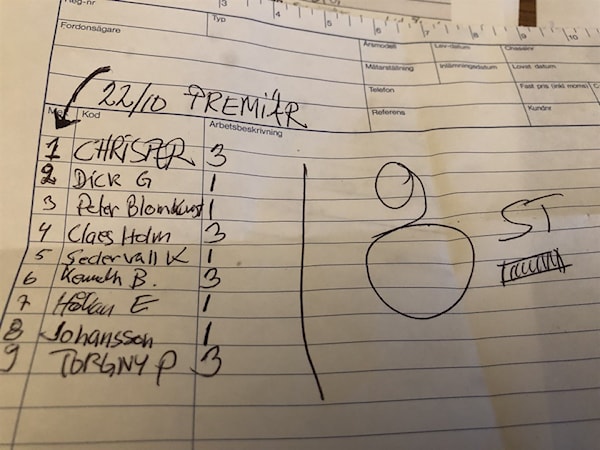 Reg-nr
Typ
Fordonsägare
Årsmodell
Lev-datum
Chassinr
Mätarställning
Inlämningsdatum
Lovat datum
Telefon
Fast pris (inkl moms)
Referens
Kundnr
22/10 PREMIÄR
Kod
Arbetsbeskrivning
1 CHRISTER 3
2 DICK G 1
3 Peter Blomkvist 1
4 Claes Holm 3
5 Sedervall K 1
6 Kenneth B. 3
7 Håkan E 1
8 Johansson 1
9 TORGNY P 3
9 ST
3
4
5
6
7
8
9
10